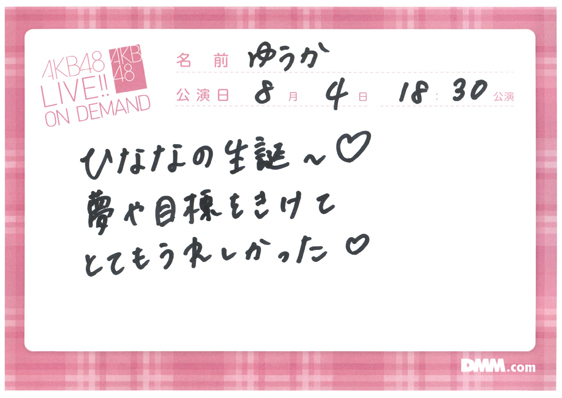 AKB48
LIVE!!
ON DEMAND
AKB
48
名前 ゆうか
公演日 8月 4日 18:30公演
ひななの生誕~♡
夢や目標をきけて
とてもうれしかった♡
DMM.com